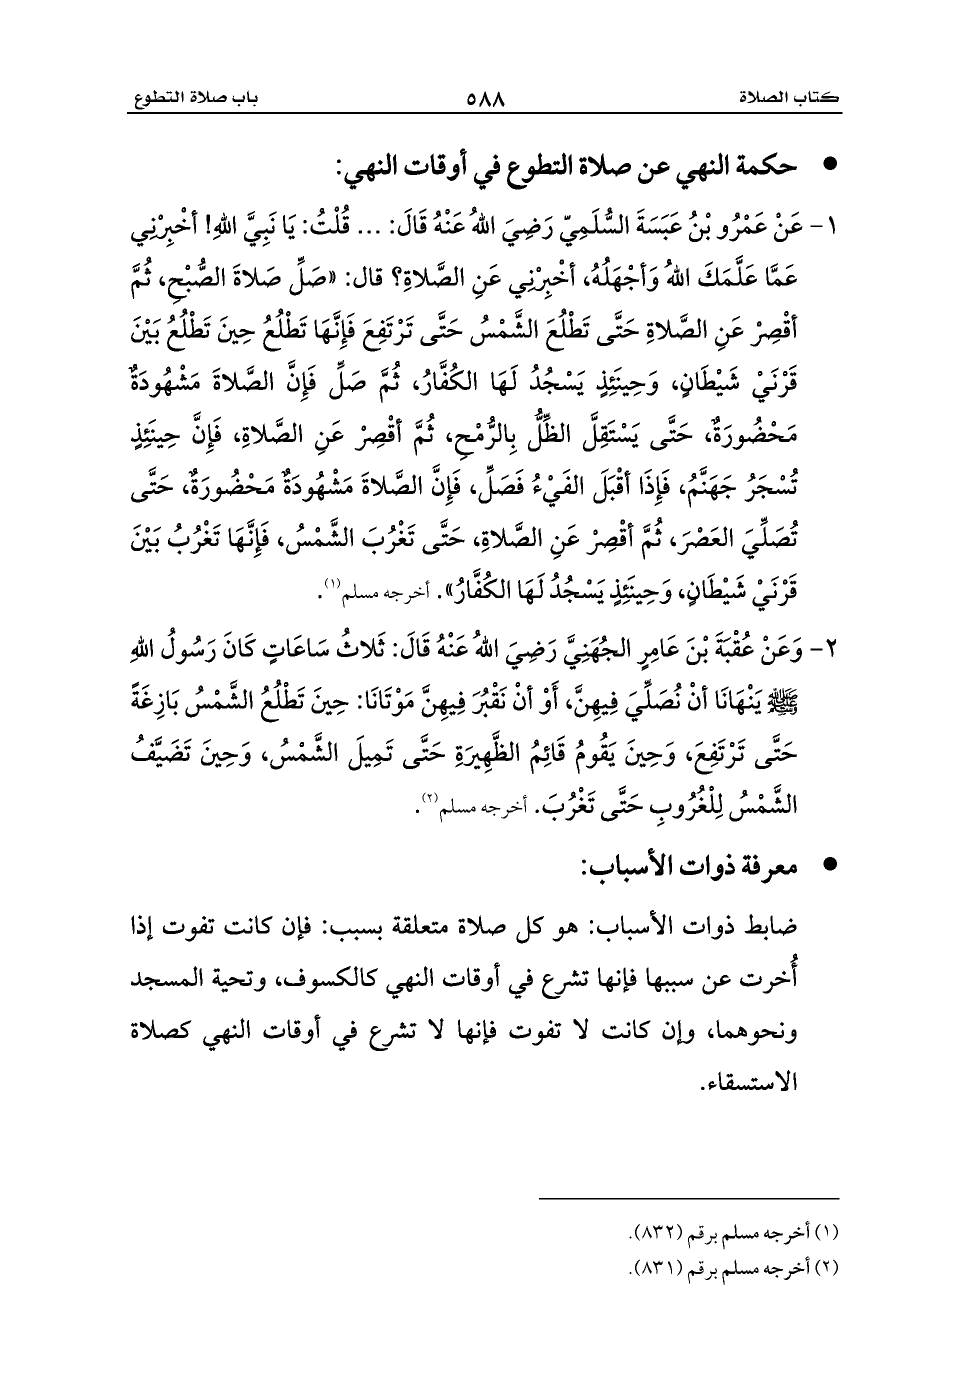 كتاب الصلاة ٥٨٨ باب صلاة التطوع
• حكمة النهي عن صلاة التطوع في أوقات النهي:
١- عَنْ عَمْرُو بْنُ عَبَسَةَ السُّلَمِيّ رَضِيَ اللهُ عَنْهُ قَالَ: ... قُلْتُ: يَا نَبِيَّ اللهِ! أخْبِرْنِي
عَمَّا عَلَّمَكَ اللهُ وَأجْهَلُهُ، أخْبِرْنِي عَنِ الصَّلاةِ؟ قال: «صَلِّ صَلاةَ الصُّبْحِ، ثُمَّ
أقْصِرْ عَنِ الصَّلاةِ حَتَّى تَطْلُعَ الشَّمْسُ حَتَّى تَرْتَفِعَ فَإِنَّهَا تَطْلُعُ حِينَ تَطْلُعُ بَيْنَ
قَرْنَيْ شَيْطَانٍ، وَحِينَئِذٍ يَسْجُدُ لَهَا الكُفَّارُ، ثُمَّ صَلِّ فَإِنَّ الصَّلاةَ مَشْهُودَةٌ
مَحْضُورَةٌ، حَتَّى يَسْتَقِلَّ الظِّلُّ بِالرُّمْحِ، ثُمَّ أقْصِرْ عَنِ الصَّلاةِ، فَإِنَّ حِينَئِذٍ
تُسْجَرُ جَهَنَّمُ، فَإِذَا أقْبَلَ الفَيْءُ فَصَلِّ، فَإِنَّ الصَّلاةَ مَشْهُودَةٌ مَحْضُورَةٌ، حَتَّى
تُصَلِّيَ العَصْرَ، ثُمَّ أقْصِرْ عَنِ الصَّلاةِ، حَتَّى تَغْرُبَ الشَّمْسُ، فَإِنَّهَا تَغْرُبُ بَيْنَ
قَرْنَيْ شَيْطَانٍ، وَحِينَئِذٍ يَسْجُدُ لَهَا الكُفَّارُ». أخرجه مسلم(١).
٢- وَعَنْ عُقْبَةَ بْنَ عَامِرٍ الجُهَنِيَّ رَضِيَ اللهُ عَنْهُ قَالَ: ثَلاثُ سَاعَاتٍ كَانَ رَسُولُ اللهِ
ﷺ يَنْهَانَا أنْ نُصَلِّيَ فِيهِنَّ، أَوْ أنْ نَقْبُرَ فِيهِنَّ مَوْتَانَا: حِينَ تَطْلُعُ الشَّمْسُ بَازِغَةً
حَتَّى تَرْتَفِعَ، وَحِينَ يَقُومُ قَائِمُ الظَّهِيرَةِ حَتَّى تَمِيلَ الشَّمْسُ، وَحِينَ تَضَيَّفُ
الشَّمْسُ لِلْغُرُوبِ حَتَّى تَغْرُبَ. أخرجه مسلم(٢).
• معرفة ذوات الأسباب:
ضابط ذوات الأسباب: هو كل صلاة متعلقة بسبب: فإن كانت تفوت إذا
أُخرت عن سببها فإنها تشرع في أوقات النهي كالكسوف، وتحية المسجد
ونحوهما، وإن كانت لا تفوت فإنها لا تشرع في أوقات النهي كصلاة
الاستسقاء.
(١) أخرجه مسلم برقم (٨٣٢).
(٢) أخرجه مسلم برقم (٨٣١).